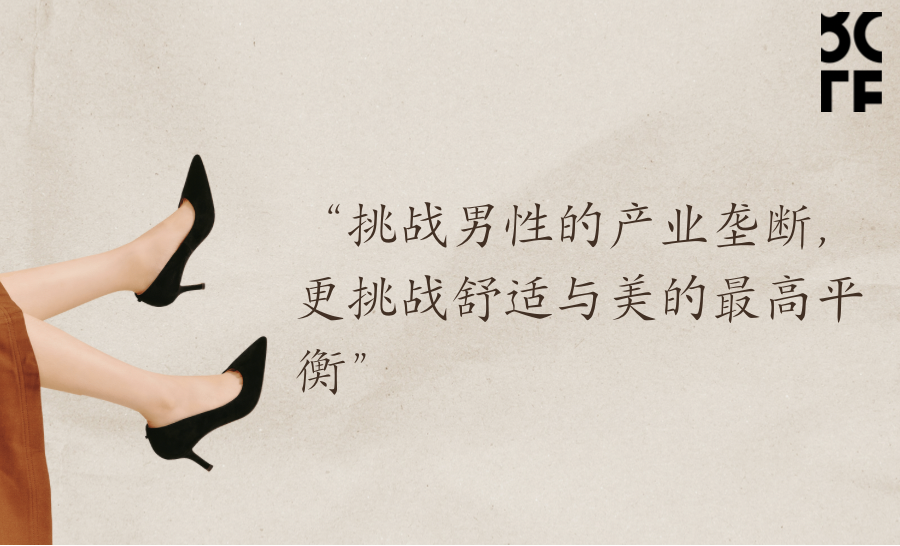 “挑战男性的产业垄断,
更挑战舒适与美的最高平
衡”